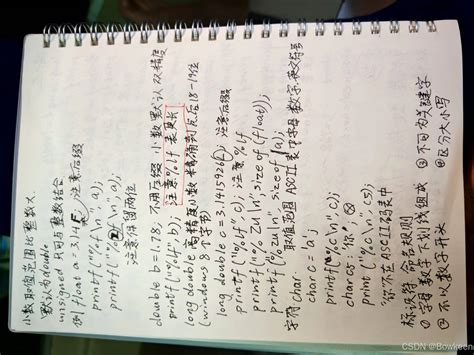 小数取值范围比整数大
默认为double
unsigned 只可与整数结合
例 float a = 3.14F; 注意后缀
printf("%f\n", a);
printf("%.2f\n", a);
注意保留两位
double b = 1.78; 不要后缀, 小数默认双精度
printf("%lf", b); 注意%lf 表是长
long double 高精度小数 精确到 小数点后18-19位
(windows 8个字节)
long double c = 3.1415926L; 注意后缀
printf("%Lf", c); 注意%Lf
printf("%zu\n", sizeof(float));
printf("%zu\n", sizeof(a));
字符 char. 取值范围 ASCII表中字母 数字 英文符号
char c = 'a';
printf("%c\n", c);
char c5 = '你'; printf("%c\n", c5);
"你"不在ASCII码表中
标识符 命名规则
①字母 数字 下划线组成 ③不可为关键字
②不以数字开头 ④区分大小写
CSDN @Bowkeen